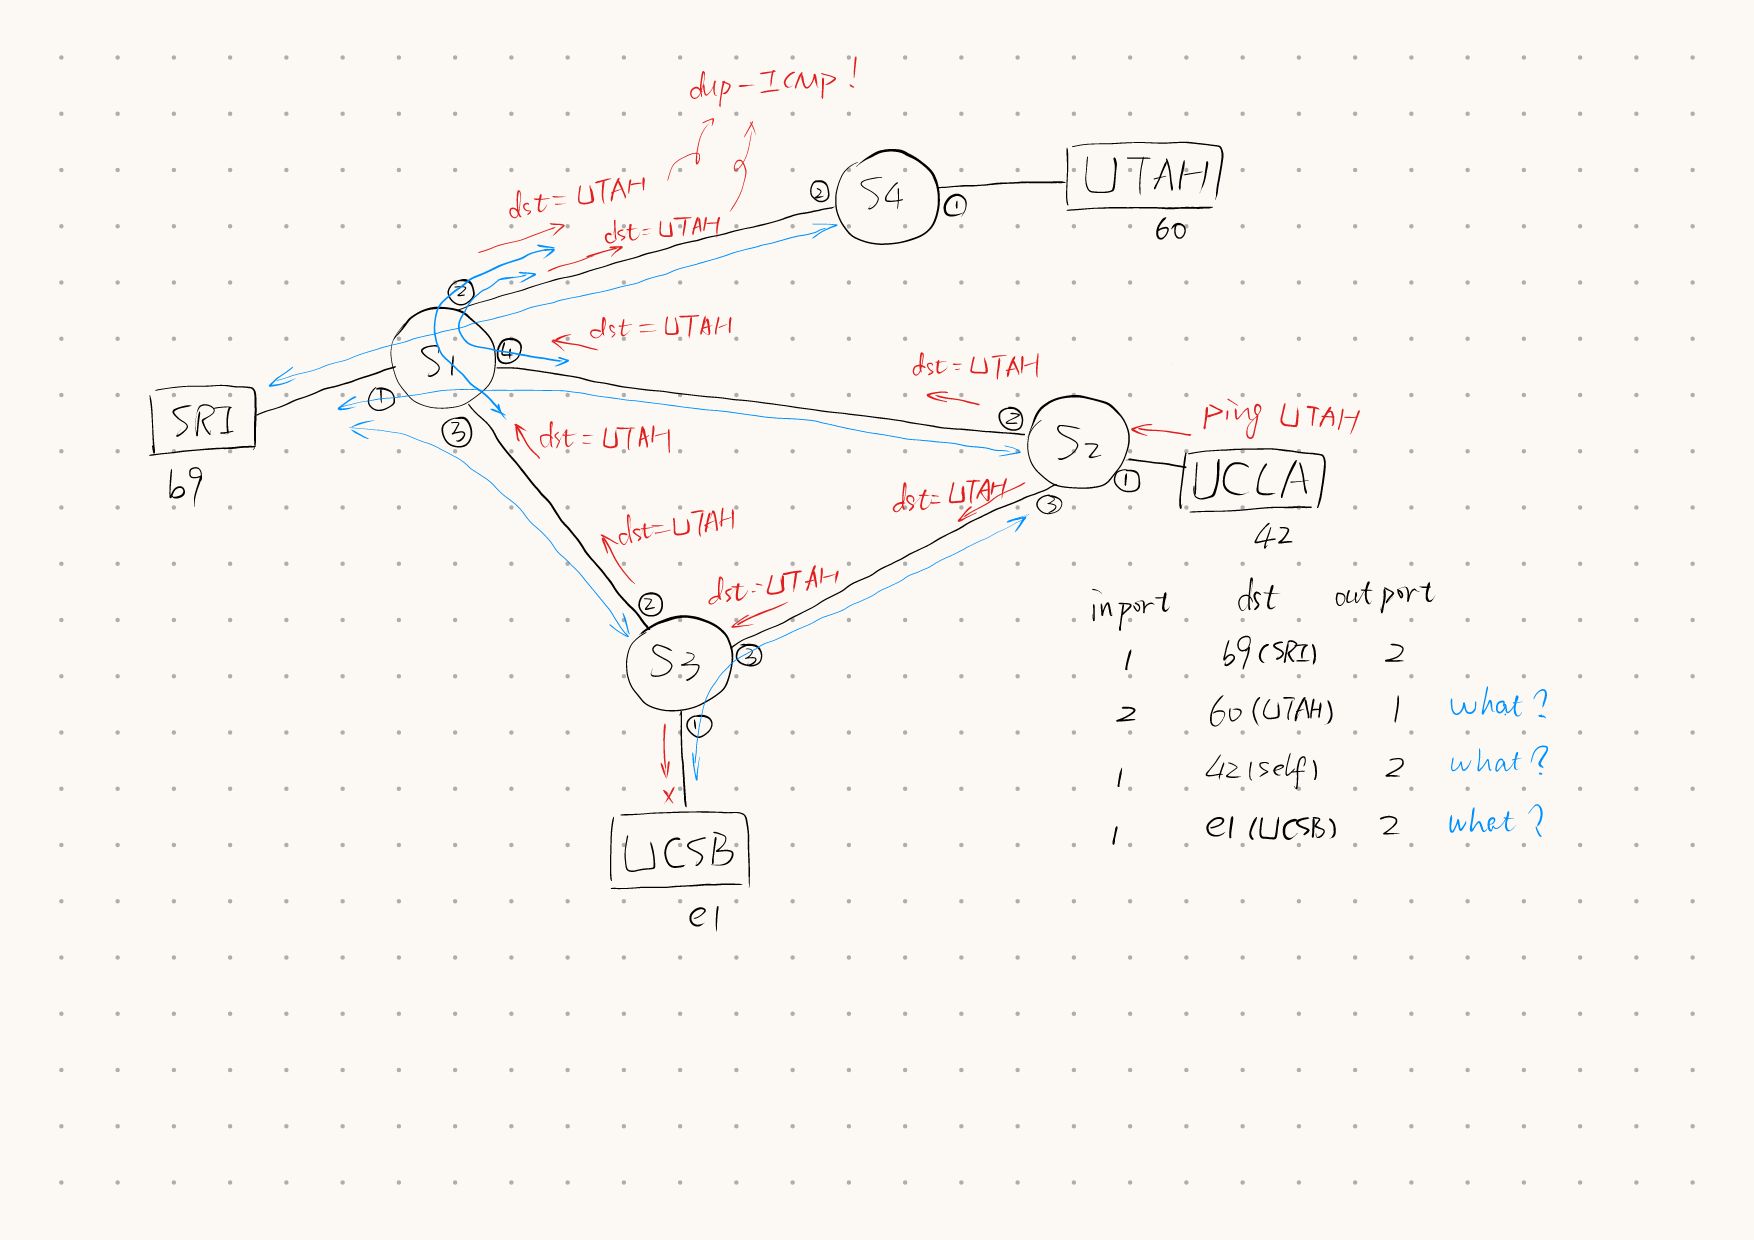 dup-ICMP!
dst=UTAH
dst=UTAH
② S4 ①
UTAH
60
②
S1
④
dst=UTAH
①
③
SRI
69
dst=UTAH
dst=UTAH
②
S2
①
ping UTAH
UCLA
42
dst=UTAH
③
dst=UTAH
dst=UTAH
②
S3
③
①
x
UCSB
e1
inport dst outport
1 69(SRI) 2
2 60(UTAH) 1 what?
1 42(self) 2 what?
1 e1(UCSB) 2 what?